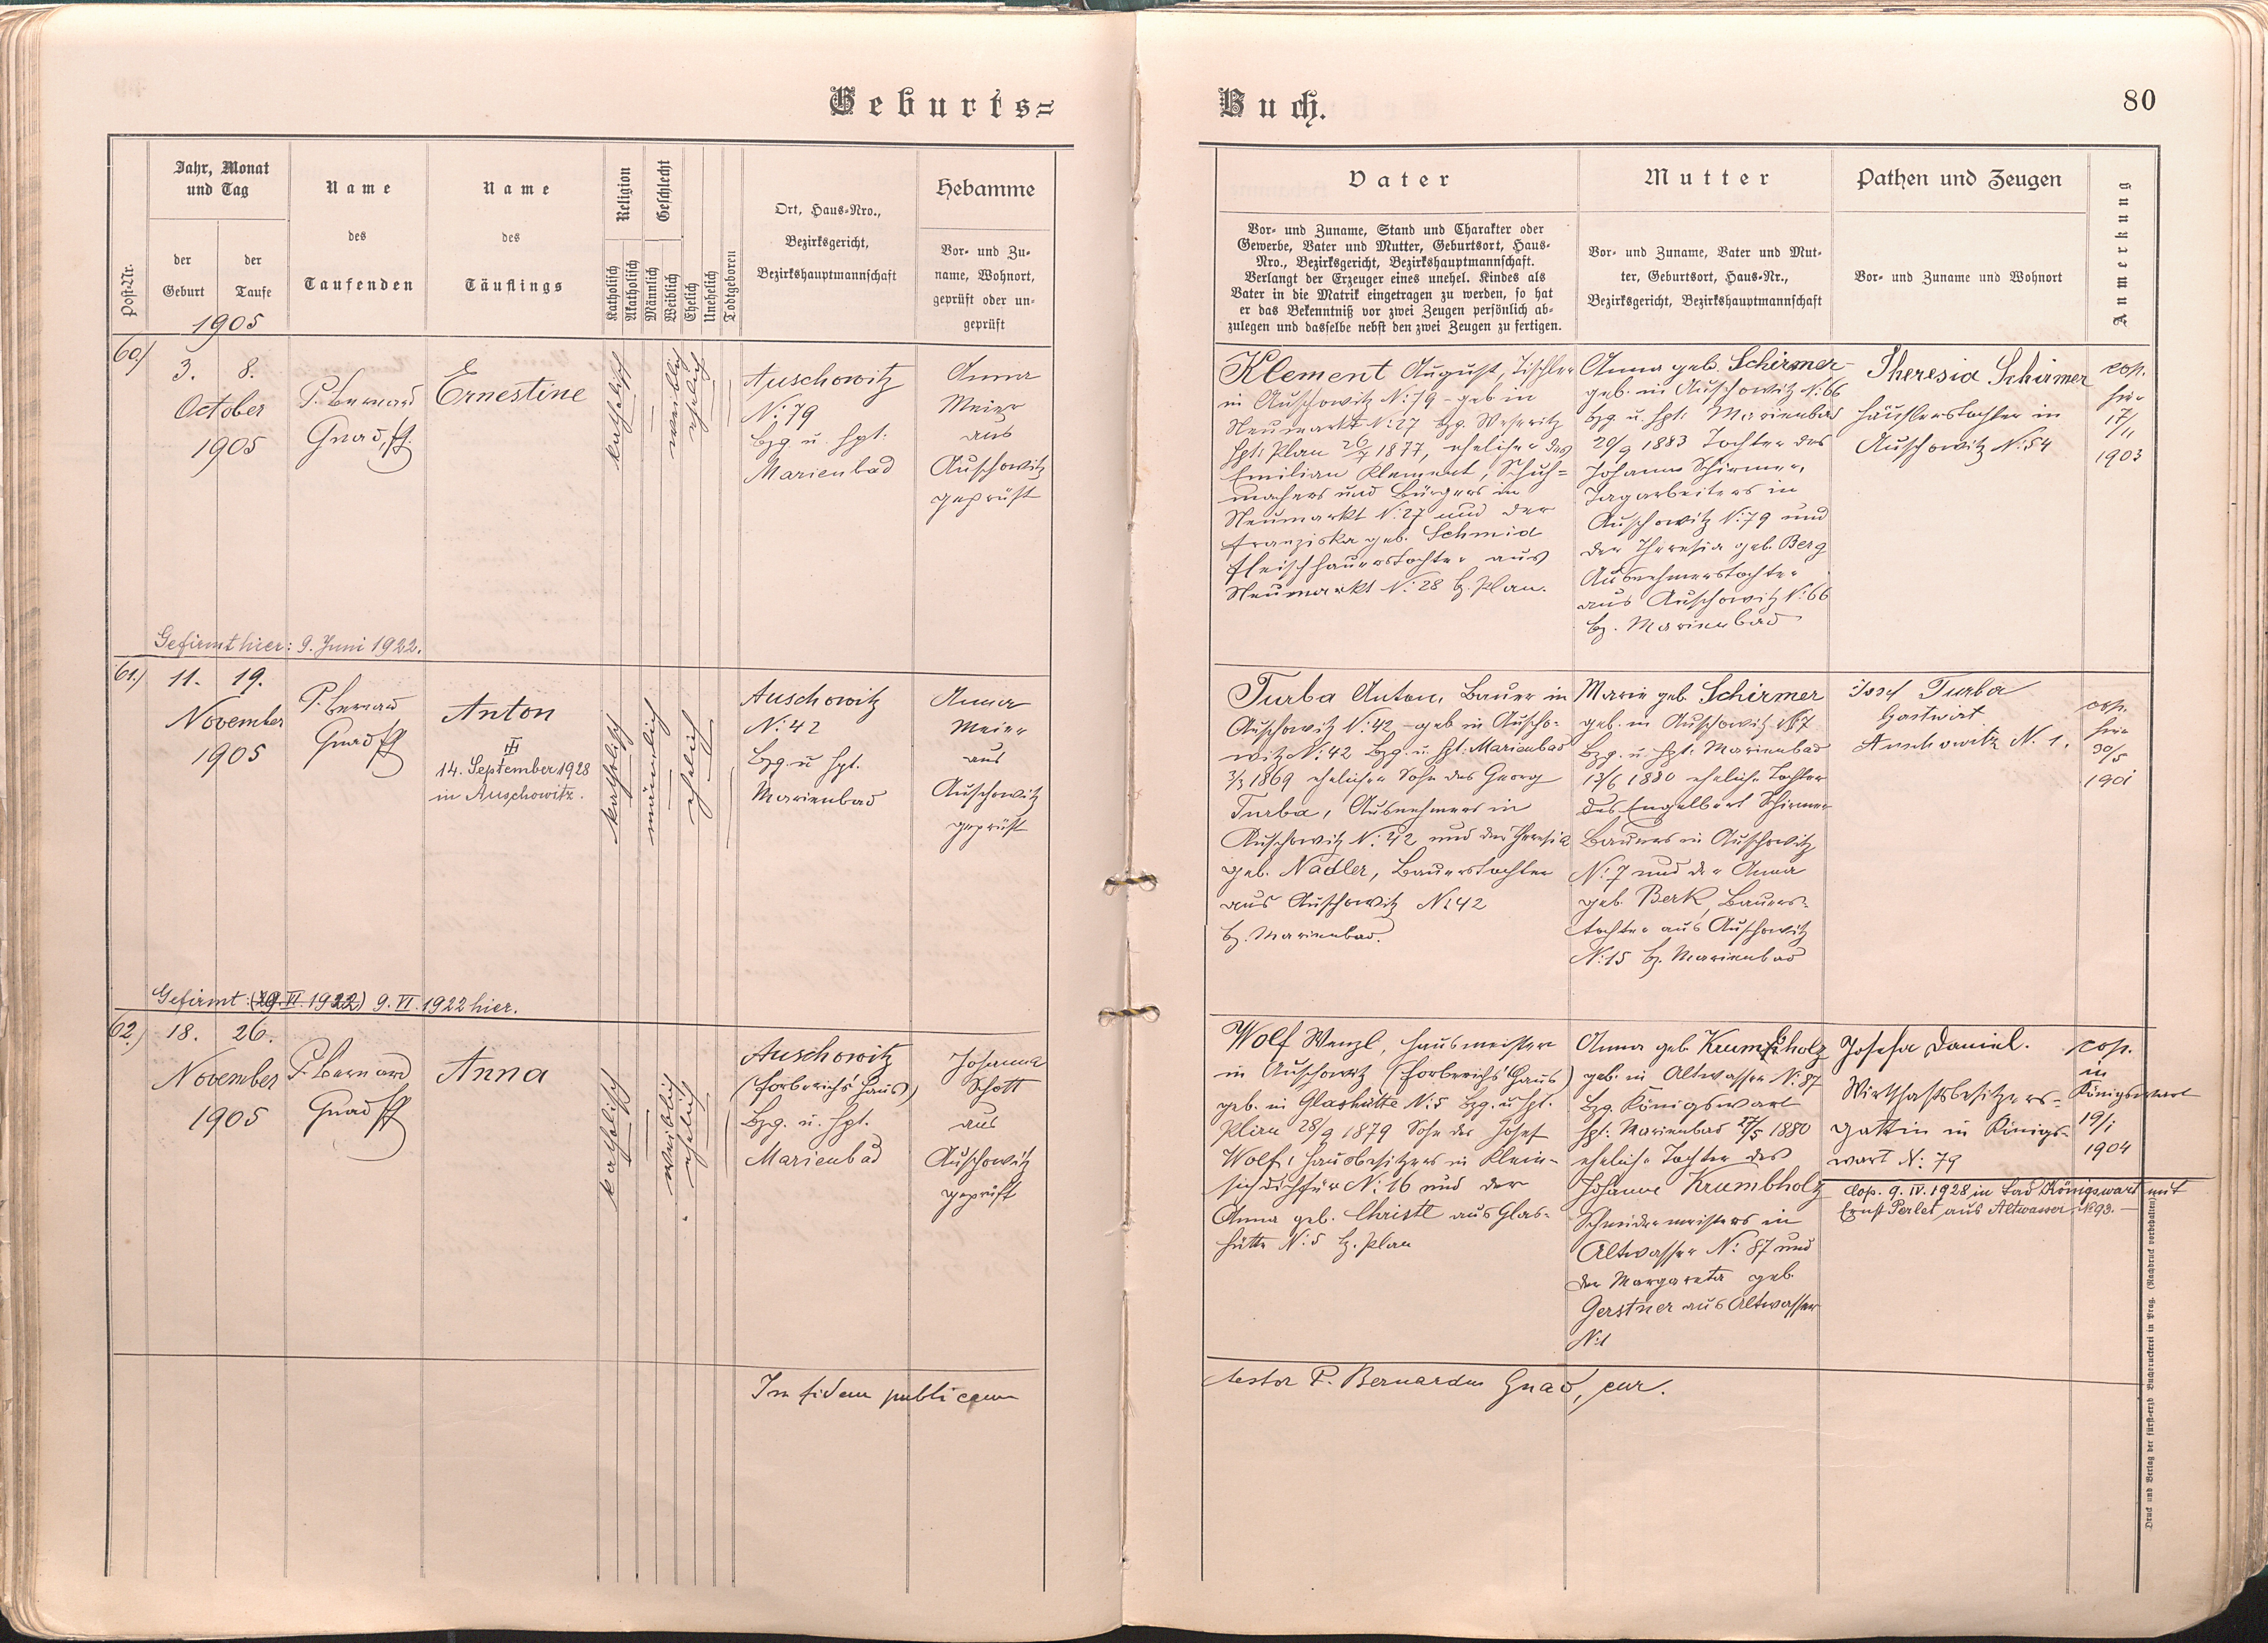 Geburts=
Buch.
80
Post-Nr.
Jahr, Monat
und Tag
der
Geburt
der
Taufe
1905
Name
des
Taufenden
Name
des
Täuflings
Religion
Katholisch
Akatholisch
Geschlecht
Männlich
Weiblich
Ehelich
Unehelich
Todtgeboren
Ort, Haus-Nro.,
Bezirksgericht,
Bezirkshauptmannschaft
Hebamme
Vor- und Zu-
name, Wohnort,
geprüft oder un-
geprüft
Vater
Vor- und Zuname, Stand und Charakter oder
Gewerbe, Vater und Mutter, Geburtsort, Haus-
Nro., Bezirksgericht, Bezirkshauptmannschaft.
Verlangt der Erzeuger eines unehel. Kindes als
Vater in die Matrik eingetragen zu werden, so hat
er das Bekenntniß vor zwei Zeugen persönlich ab-
zulegen und dasselbe nebst den zwei Zeugen zu fertigen.
Mutter
Vor- und Zuname, Vater und Mut-
ter, Geburtsort, Haus-Nr.,
Bezirksgericht, Bezirkshauptmannschaft
Pathen und Zeugen
Vor- und Zuname und Wohnort
Anmerkung
60.)
3. 8.
October
1905
P. Bernard
Gnad
Ernestine
katholisch
weiblich
ehelich
Auschowitz
N: 79
Bzg u. Hpt:
Marienbad
Anna
Meier
aus
Auschowitz
geprüft
Gefirmt hier: 9. Juni 1922.
Klement August, Tischler
in Auschowitz N: 79 - geb in
Neumarkt N: 27 Bzg. Weseritz
Hpt: Plan 26/7 1877, ehelicher des
Emilian Klement, Schuh=
machers und Bürgers in
Neumarkt N: 27 und der
Franziska geb. Schmid
Fleischhauerstochter aus
Neumarkt N: 28 bz. Plan.
Anna geb. Schirmer
geb. in Auschowitz N: 66
Bzg u. Hpt: Marienbad
29/9 1883 Tochter des
Johann Schirmer,
Tagarbeiters in
Auschowitz N: 79 und
der Theresia geb. Berg
Ausnehmerstochter
aus Auschowitz N: 66
bz. Marienbad
Theresia Schirmer
Häuslerstochter in
Auschowitz N: 54
cop.
hier
17/
11
1903
61.)
11. 19.
November
1905
P. Bernard
Gnad
Anton
14. September 1928
in Auschowitz.
katholisch
männlich
ehelich
Auschowitz
N: 42
Bzg. u Hpt.
Marienbad
Anna
Meier
aus
Auschowitz
geprüft
Gefirmt: (19. VI. 1922) 9. VI. 1922 hier.
Turba Anton, Bauer in
Auschowitz N: 42 - geb in Auscho-
witz N: 42 Bzg. u. Hpt: Marienbad
3/3 1869 ehelicher Sohn des Georg
Turba, Ausnehmers in
Auschowitz N: 42 und der Theresia
geb. Nadler, Bauerstochter
aus Auschowitz N: 42
bz. Marienbad.
Marie geb Schirmer
geb. in Auschowitz N: 7
Bzg. u. Hpt: Marienbad
13/6 1880 eheliche Tochter
des Engelbert Schirmer
Bauers in Auschowitz
N: 7 und der Anna
geb. Berk, Bauers-
tochter aus Auschowitz
N: 15 bz. Marienbad
Josef Turba
Gastwirt
Auschowitz N. 1.
cop.
hier
30/5
1901
62.)
18. 26.
November
1905
P. Bernard
Gnad
Anna
katholisch
weiblich
ehelich
Auschowitz
(Forberichs' Haus)
Bzg. u. Hpt.
Marienbad
Johanna
Schott
aus
Auschowitz
geprüft
Wolf Wenzl, Hausmeister
in Auschowitz (Forberichs' Haus)
geb. in Glashütte N: 5 Bzg. u Hpt.
Plan 28/9 1879 Sohn des Josef
Wolf, Hausbesitzers in Klein-
sichdichfür N: 16 und der
Anna geb. Christl aus Glas-
hütte N: 5 bz. Plan
Anna geb Krumbholz
geb. in Altwasser N: 87
Bzg. Königswart
Hpt: Marienbad 27/5 1880
eheliche Tochter des
Johann Krumbholz
Schneidermeisters in
Altwasser N: 87 und
der Margareta geb.
Gerstner aus Altwasser
N: 1
Josefa Daniel.
Wirthschaftsbesitzers-
gattin in Königs-
wart N: 79
cop.
in
Königswart
19/1
1904
Cop. 9. IV. 1928 in Bad Königswart mit
Ernst Perlet aus Altwasser No 93.
In fidem publicam
testor P. Bernardus Gnad, cur.
Druck und Verlag der fürst-erzb Buchdruckerei in Prag. (Nachdruck vorbehalten.)